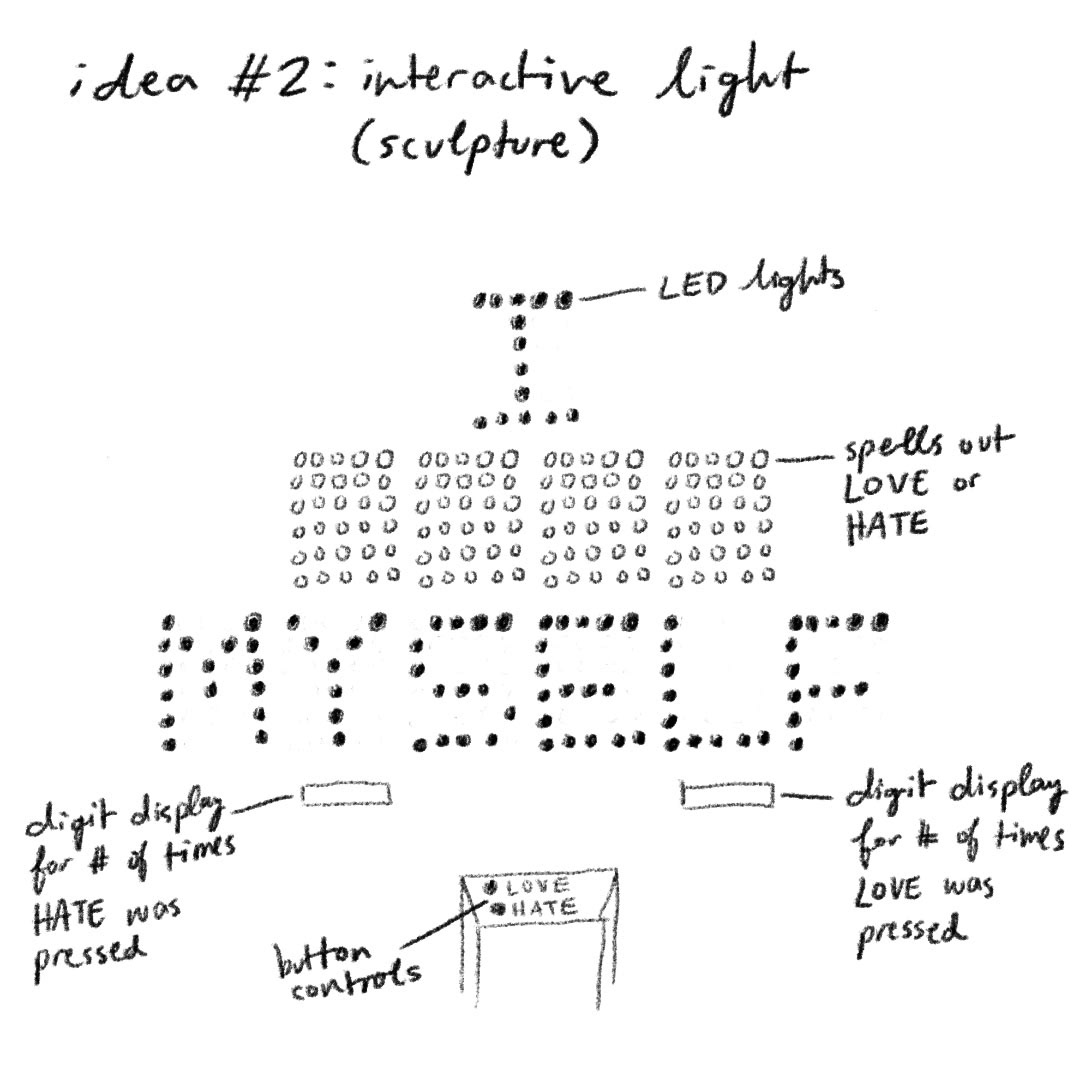 idea #2: interactive light
(sculpture)
LED lights
I
spells out
LOVE or
HATE
MYSELF
digit display
for # of times
HATE was
pressed
digit display
for # of times
LOVE was
pressed
LOVE
HATE
button
controls